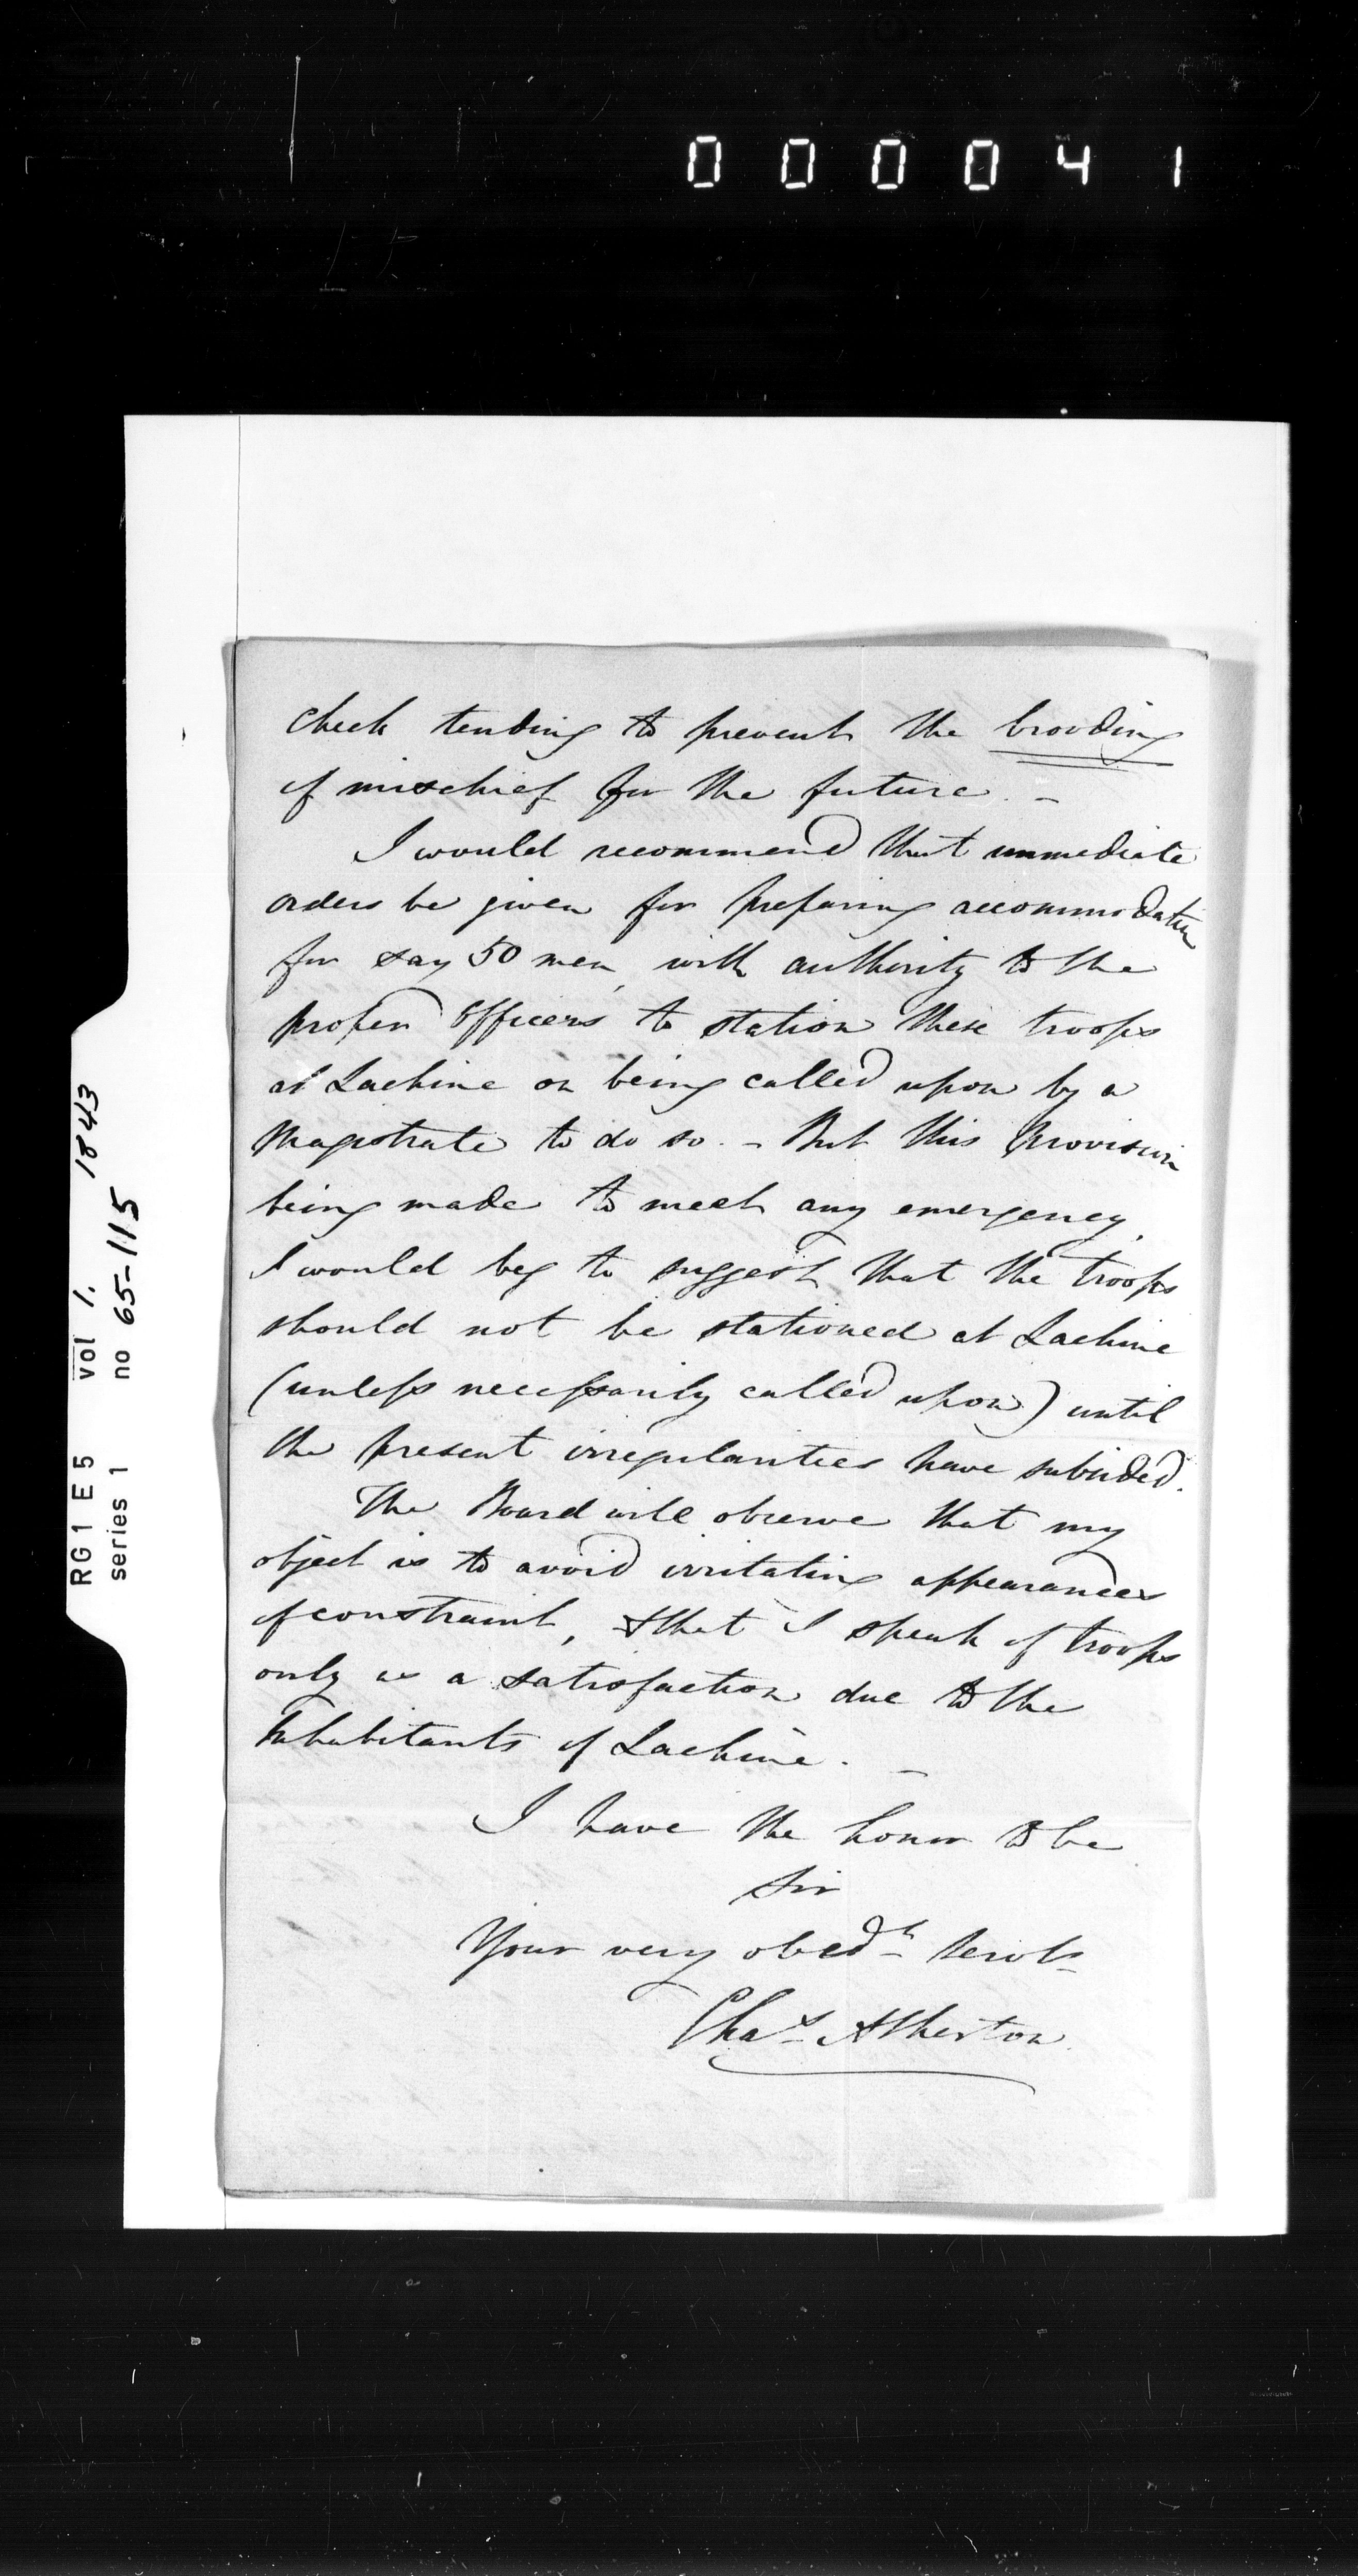 000041
RG1 E5 vol 1. 1843
series 1 no 65-115
check tending to prevent the brooding
of mischief for the future. –
I would recommend that immediate
orders be given for preparing accommodation
for say 50 men, with authority to the
proper Officers to station these troops
at Lachine on being called upon by a
Magistrate to do so. – But this provision
being made to meet any emergency,
I would beg to suggest that the troops
should not be stationed at Lachine
(unless necessarily called upon) until
the present irregularities have subsided.
The Board will observe that my
object is to avoid irritating appearances
of constraint, & that I speak of troops
only as a satisfaction due to the
Inhabitants of Lachine. –
I have the honor to be
Sir
Your very obedt Servt
Chas Atherton